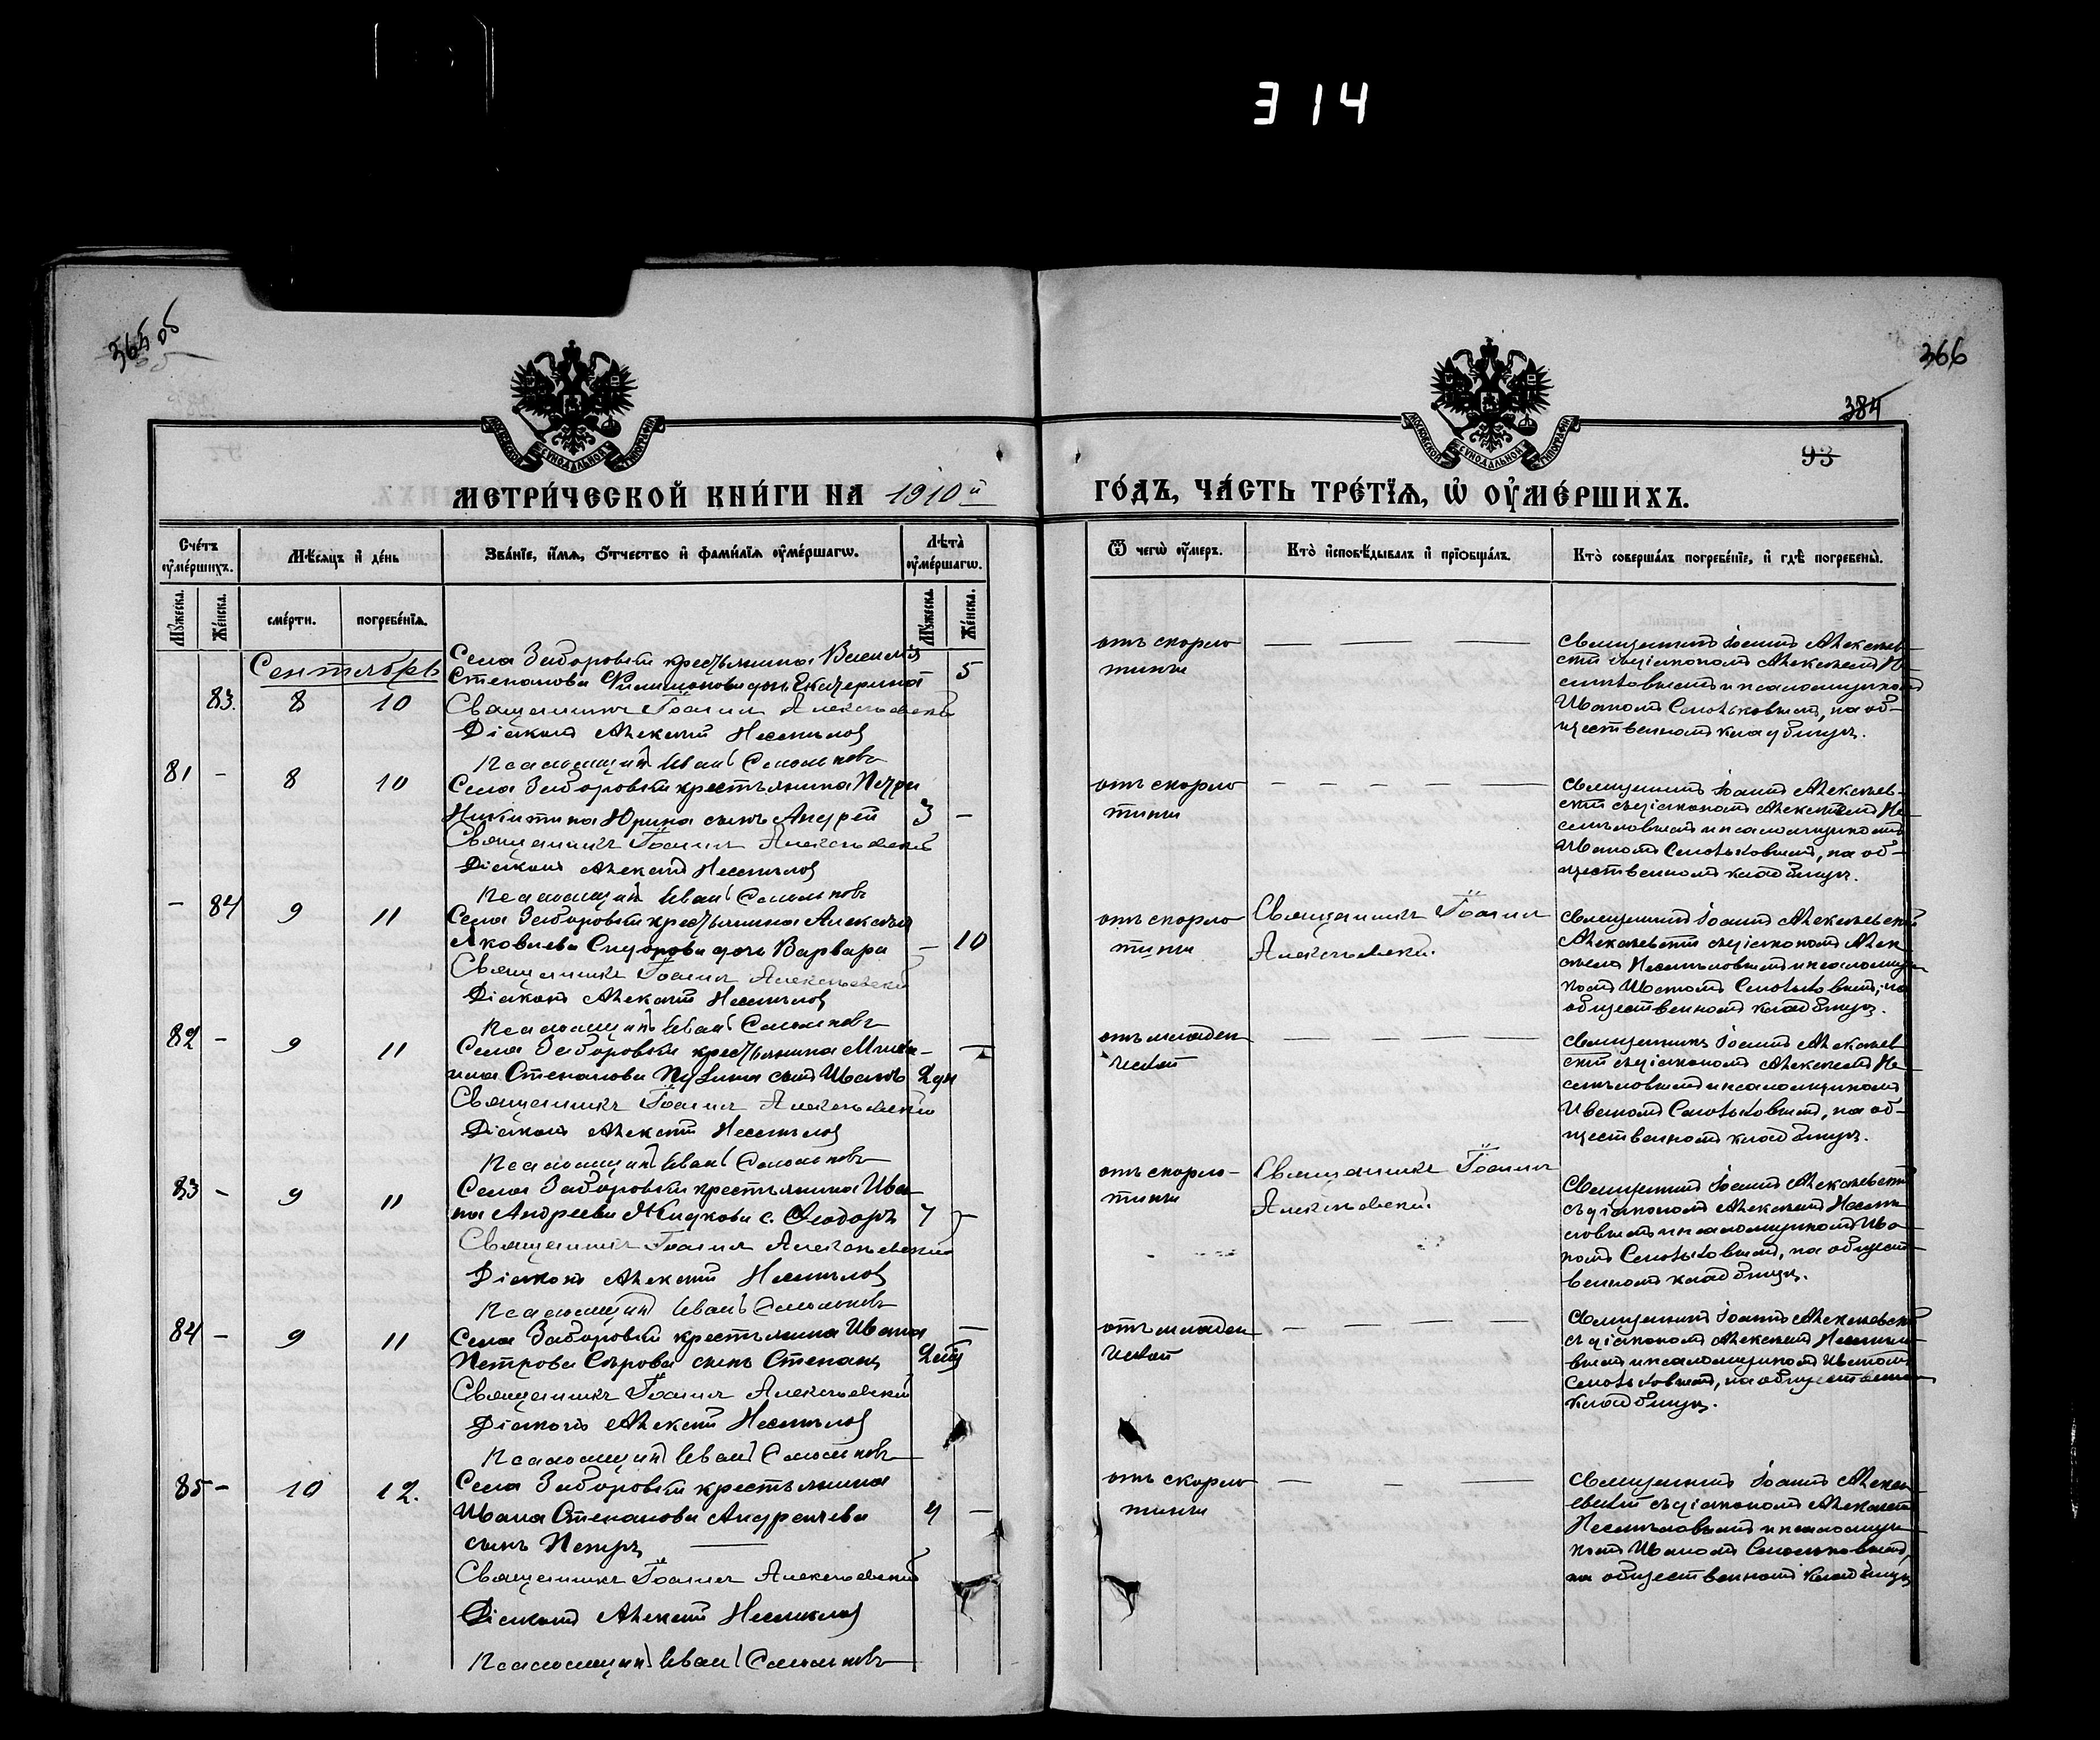 314
365 об
366
384
93
МЕТРИ́ЧЕСКОЙ КНИ́ГИ НА 1910 й
ГО́ДЪ, ЧА́СТЬ ТРЕ́ТЇѦ, Ѡ҆ ОУ҆МЕ́РШИХЪ.
МОСКОВСКОЙ СѴНОДАЛЬНОЙ ТИПОГРАФІИ
МОСКОВСКОЙ СѴНОДАЛЬНОЙ ТИПОГРАФІИ
Сче́тъ оу҆ме́ршихъ.
Мѣ́сѧцъ и҆ де́нь
Зва́нїе, и҆́мѧ, ѻ҆́тчество и҆ фами́лїѧ оу҆ме́ршагѡ.
Лѣ́та̀ оу҆ме́ршагѡ.
Ѿ чегѡ̀ оу҆́меръ.
Кто̀ и҆сповѣ́дывалъ и҆ прїѻбща́лъ.
Кто̀ соверша́лъ погребе́нїе, и҆ гдѣ̀ погребены̀.
Мꙋ́жеска. Же́нска. сме́рти. погребе́нїѧ. Мꙋ́жеска. Же́нска.
Сентябрь
83. 8 10
Села Заборовки крестьянина Василия
Степанова Филимонова дочь Екатерина 5
Священникъ Іоаннъ Алексѣевскій
Діаконъ Алексѣй Несмѣловъ
Псаломщикъ Иван Смольковъ
отъ скорла
тины
— — —
Священникъ Іоаннъ Алексѣев
скій съ діакономъ Алексѣемъ Не
смѣловымъ и псаломщикомъ
Иваномъ Смольковымъ, на об-
щественномъ кладбищѣ.
81 - 8 10
Села Заборовки крестьянина Петра
Никитина Юрина сынъ Андрей 3 —
Священникъ Іоаннъ Алексѣевскій
Діаконъ Алексѣй Несмѣловъ
Псаломщикъ Иван Смольковъ
отъ скорла
тины
— — — — —
Священникъ Іоаннъ Алексѣев-
скій съ діакономъ Алексѣемъ Не-
смѣловымъ и псаломщикомъ
Иваномъ Смольковымъ, на об-
щественномъ кладбищѣ.
- 84 9 11
Села Заборовки крестьянина Алексѣя
Яковлева Сидорова дочь Варвара — 10
Священникъ Іоаннъ Алексѣевскій
Діаконъ Алексѣй Несмѣловъ
Псаломщикъ Иван Смольковъ
отъ скорла
тины
Священникъ Іоаннъ
Алексѣевскій.
Священникъ Іоаннъ Алексѣевскій
Алексѣевскій съ діакономъ Алек
сѣемъ Несмѣловымъ и псаломщи
комъ Иваномъ Смольковымъ, на
общественномъ кладбищѣ.
82 - 9 11
Села Заборовки крестьянина Михаи-
ила Степанова сынъ Иванъ 2 дн —
Священникъ Іоаннъ Алексѣевскій
Діаконъ Алексѣй Несмѣловъ
Псаломщикъ Иван Смольковъ
отъ младен
ческой
— — — — —
Священникъ Іоаннъ Алексѣев
скій съ діакономъ Алексѣемъ Не-
смѣловымъ и псаломщикомъ
Иваномъ Смольковымъ, на об-
щественномъ кладбищѣ.
83 - 9 11
Села Заборовки крестьянина Ива-
на Андреева Жидкова с. Ѳеодоръ 7 —
Священникъ Іоаннъ Алексѣевскій
Діаконъ Алексѣй Несмѣловъ
Псаломщикъ Иван Смольковъ
отъ скорла-
тины
Священникъ Іоаннъ
Алексѣевскій.
Священникъ Іоаннъ Алексѣевскій
съ діакономъ Алексѣемъ Несмѣ
ловымъ и псаломщикомъ Ива
номъ Смольковымъ, на общест-
венномъ кладбищѣ.
84 - 9 11
Села Заборовки крестьянина Ивана —
Петрова Сѣрова сынъ Степанъ
Священникъ Іоаннъ Алексѣевскій
Діаконъ Алексѣй Несмѣловъ
Псаломщикъ Иван Смольковъ
отъ младен
ческой
— — — — —
Священникъ Іоаннъ Алексѣевскій
съ діакономъ Алексѣемъ Несмѣло-
вымъ и псаломщикомъ Иваномъ
Смольковымъ, на общественномъ
кладбищѣ.
85 - 10 12.
Села Заборовки крестьянина
Ивана Степанова Андреичева 4 —
сынъ Петръ
Священникъ Іоаннъ Алексѣевскій
Діаконъ Алексѣй Несмѣловъ
Псаломщикъ Иван Смольковъ
отъ скорла
тины
— — —
Священникъ Іоаннъ Алексѣ
евскій съ діакономъ Алексѣемъ
Несмѣловымъ и псаломщи
комъ Иваномъ Смольковымъ,
на общественномъ кладбищѣ